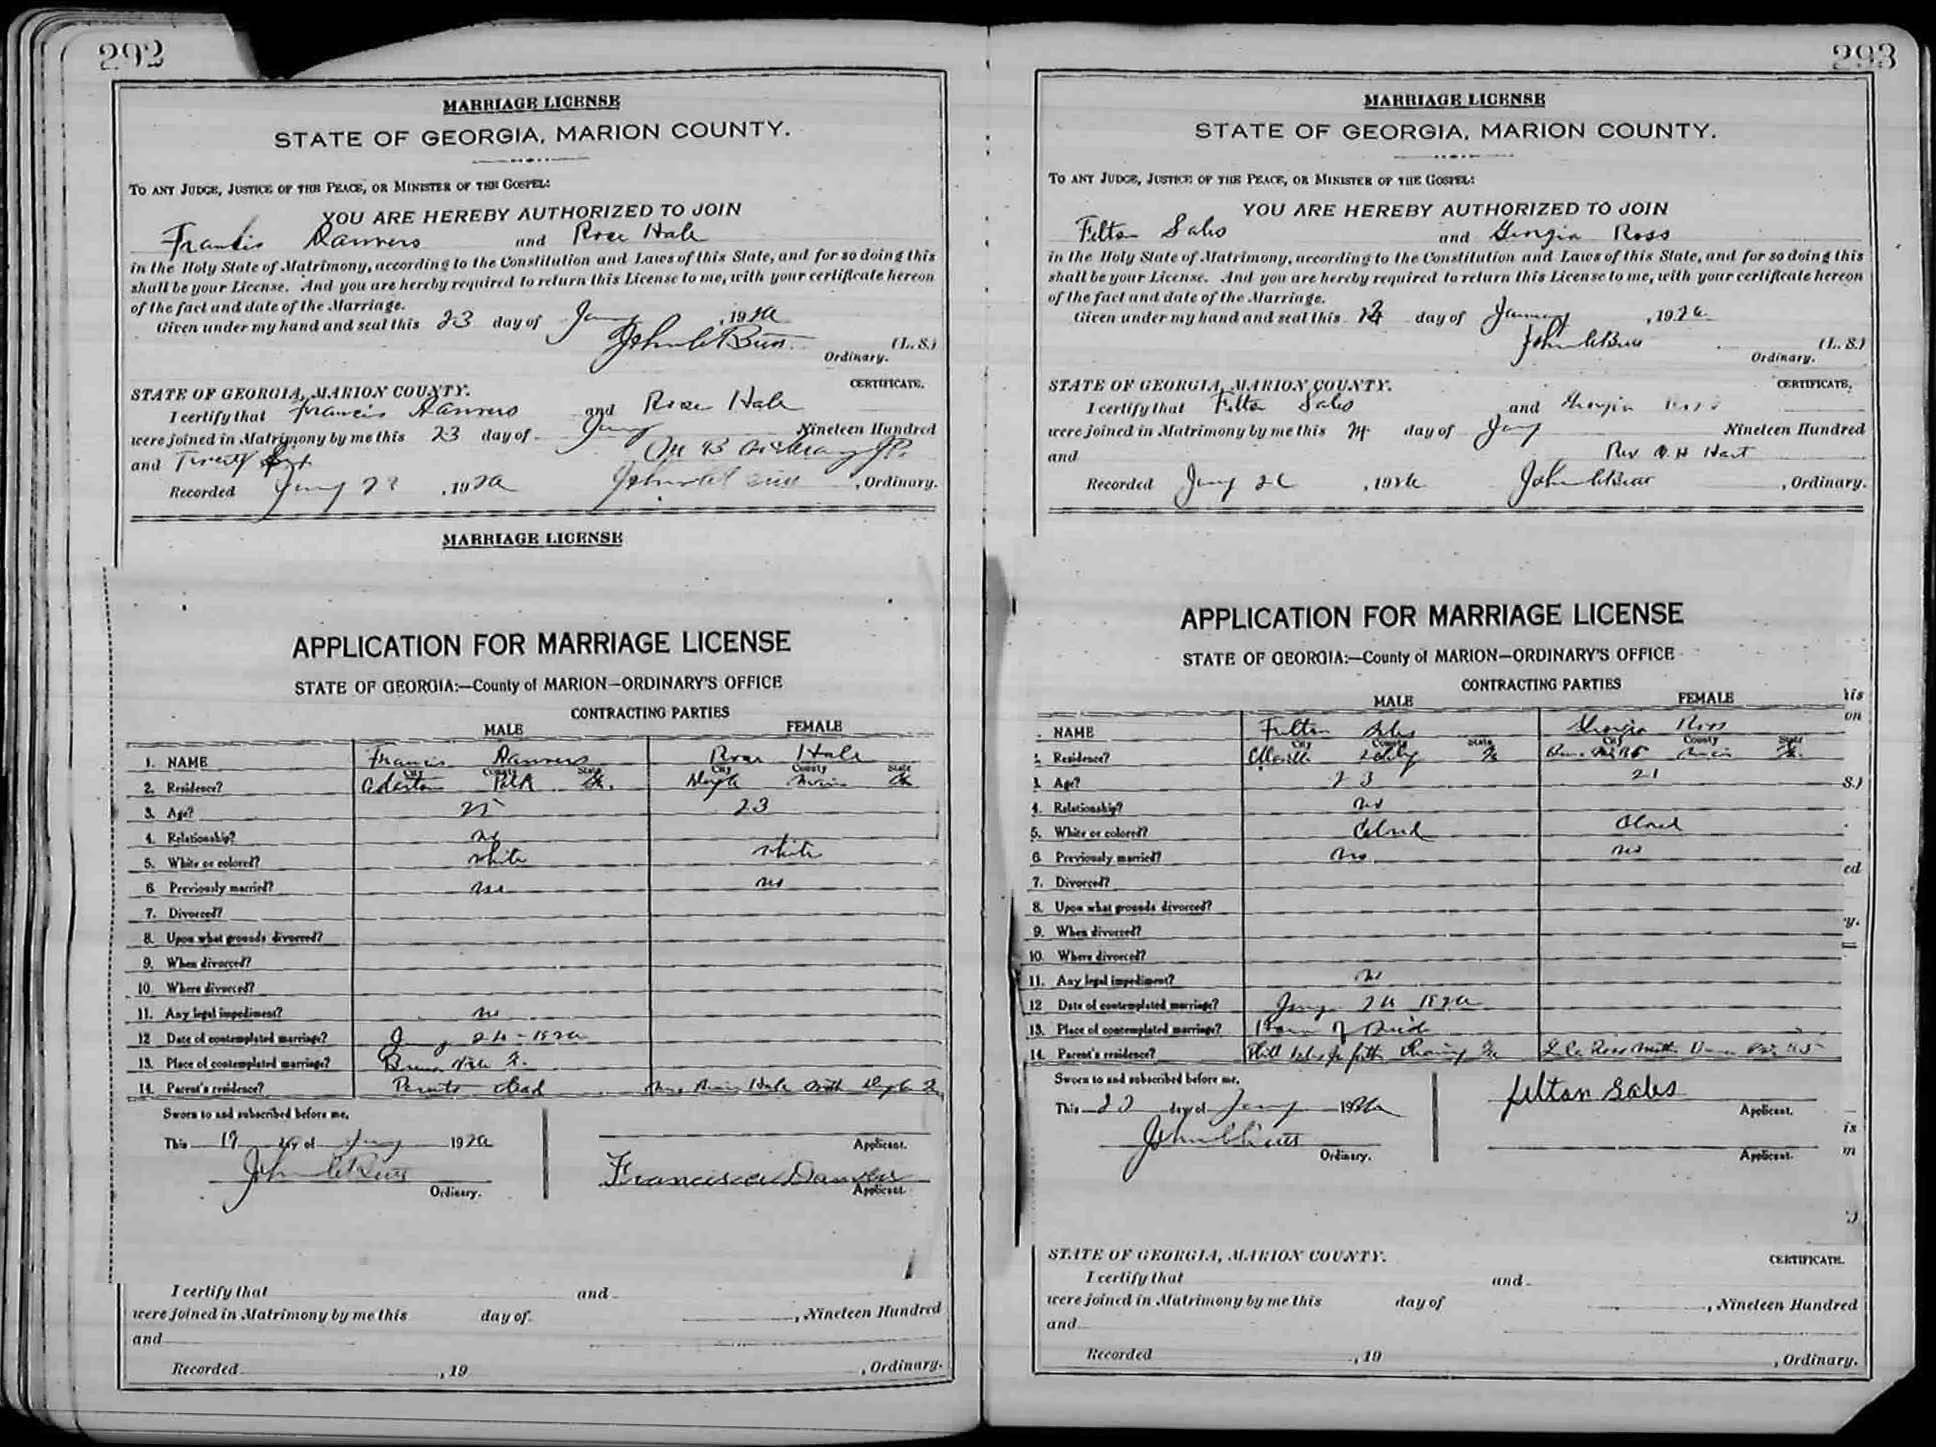 292
MARRIAGE LICENSE
STATE OF GEORGIA, MARION COUNTY.
TO ANY JUDGE, JUSTICE OF THE PEACE, OR MINISTER OF THE GOSPEL:
YOU ARE HEREBY AUTHORIZED TO JOIN
Francis Danvers and Rose Hale
in the Holy State of Matrimony, according to the Constitution and Laws of this State, and for so doing this
shall be your License. And you are hereby required to return this License to me, with your certificate hereon
of the fact and date of the Marriage.
Given under my hand and seal this 23 day of Jany, 1926
John C Butt (L. S.)
Ordinary.
STATE OF GEORGIA, MARION COUNTY. CERTIFICATE.
I certify that Francis Danvers and Rose Hale
were joined in Matrimony by me this 23 day of Jany Nineteen Hundred
and Twenty Six M B J.P.
Recorded Jany, 1926 John C Butt, Ordinary.
MARRIAGE LICENSE
APPLICATION FOR MARRIAGE LICENSE
STATE OF GEORGIA:—County of MARION—ORDINARY'S OFFICE
CONTRACTING PARTIES
MALE FEMALE
1. NAME Francis Danvers Rose Hale
City County State City County State
2. Residence? Polk Ga. Marion Ga
3. Age? 25 23
4. Relationship? no
5. White or colored? white white
6 Previously married? no no
7. Divorced?
8. Upon what grounds divorced?
9. When divorced?
10 Where divorced?
11. Any legal impediment? no
12 Date of contemplated marriage? Jany 24-1926
13. Place of contemplated marriage? Buena Vista Ga.
14. Parent's residence? Parents dead Mrs. Hale Moth Ga
Sworn to and subscribed before me,
This 19 day of Jany 1926 Applicant.
John C Butt Ordinary. Danvers Applicant.
I certify that and
were joined in Matrimony by me this day of , Nineteen Hundred
and
Recorded , 19 , Ordinary.
293
MARRIAGE LICENSE
STATE OF GEORGIA, MARION COUNTY.
TO ANY JUDGE, JUSTICE OF THE PEACE, OR MINISTER OF THE GOSPEL:
YOU ARE HEREBY AUTHORIZED TO JOIN
Felton Sales and Georgia Ross
in the Holy State of Matrimony, according to the Constitution and Laws of this State, and for so doing this
shall be your License. And you are hereby required to return this License to me, with your certificate hereon
of the fact and date of the Marriage.
Given under my hand and seal this day of January, 1926
John C Butt (L. S.)
Ordinary.
STATE OF GEORGIA, MARION COUNTY. CERTIFICATE.
I certify that Felton Sales and Georgia Ross
were joined in Matrimony by me this 24 day of Jany Nineteen Hundred
and Rev. Hart
Recorded Jany 26, 1926 John C Butt, Ordinary.
APPLICATION FOR MARRIAGE LICENSE
STATE OF GEORGIA:—County of MARION—ORDINARY'S OFFICE
CONTRACTING PARTIES
MALE FEMALE
NAME Felton Sales Georgia Ross
City County State City County State
Residence? Ga Marion Ga.
3. Age? 23 21
4. Relationship? no
5. White or colored? Colord Colord
6 Previously married? no no
7. Divorced?
8. Upon what grounds divorced?
9. When divorced?
10. Where divorced?
11. Any legal impediment? no
12 Date of contemplated marriage? Jany 24 1926
13. Place of contemplated marriage? Home of Bride
14. Parent's residence? Sales Ga Ross
Sworn to and subscribed before me,
This 23 day of Jany 1926 felton sales Applicant.
John C Butt Ordinary. Applicant.
STATE OF GEORGIA, MARION COUNTY. CERTIFICATE.
I certify that and
were joined in Matrimony by me this day of , Nineteen Hundred
and
Recorded , 19 , Ordinary.